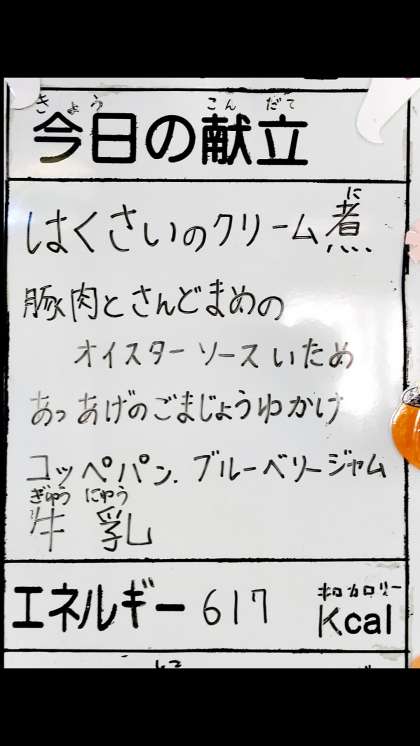 きょう こんだて
今日の献立
に
はくさいのクリーム煮
豚肉とさんどまめの
オイスターソースいため
あつあげのごまじょうゆかけ
コッペパン.ブルーベリージャム
ぎゅう にゅう
牛乳
キロカロリー
エネルギー 617 Kcal